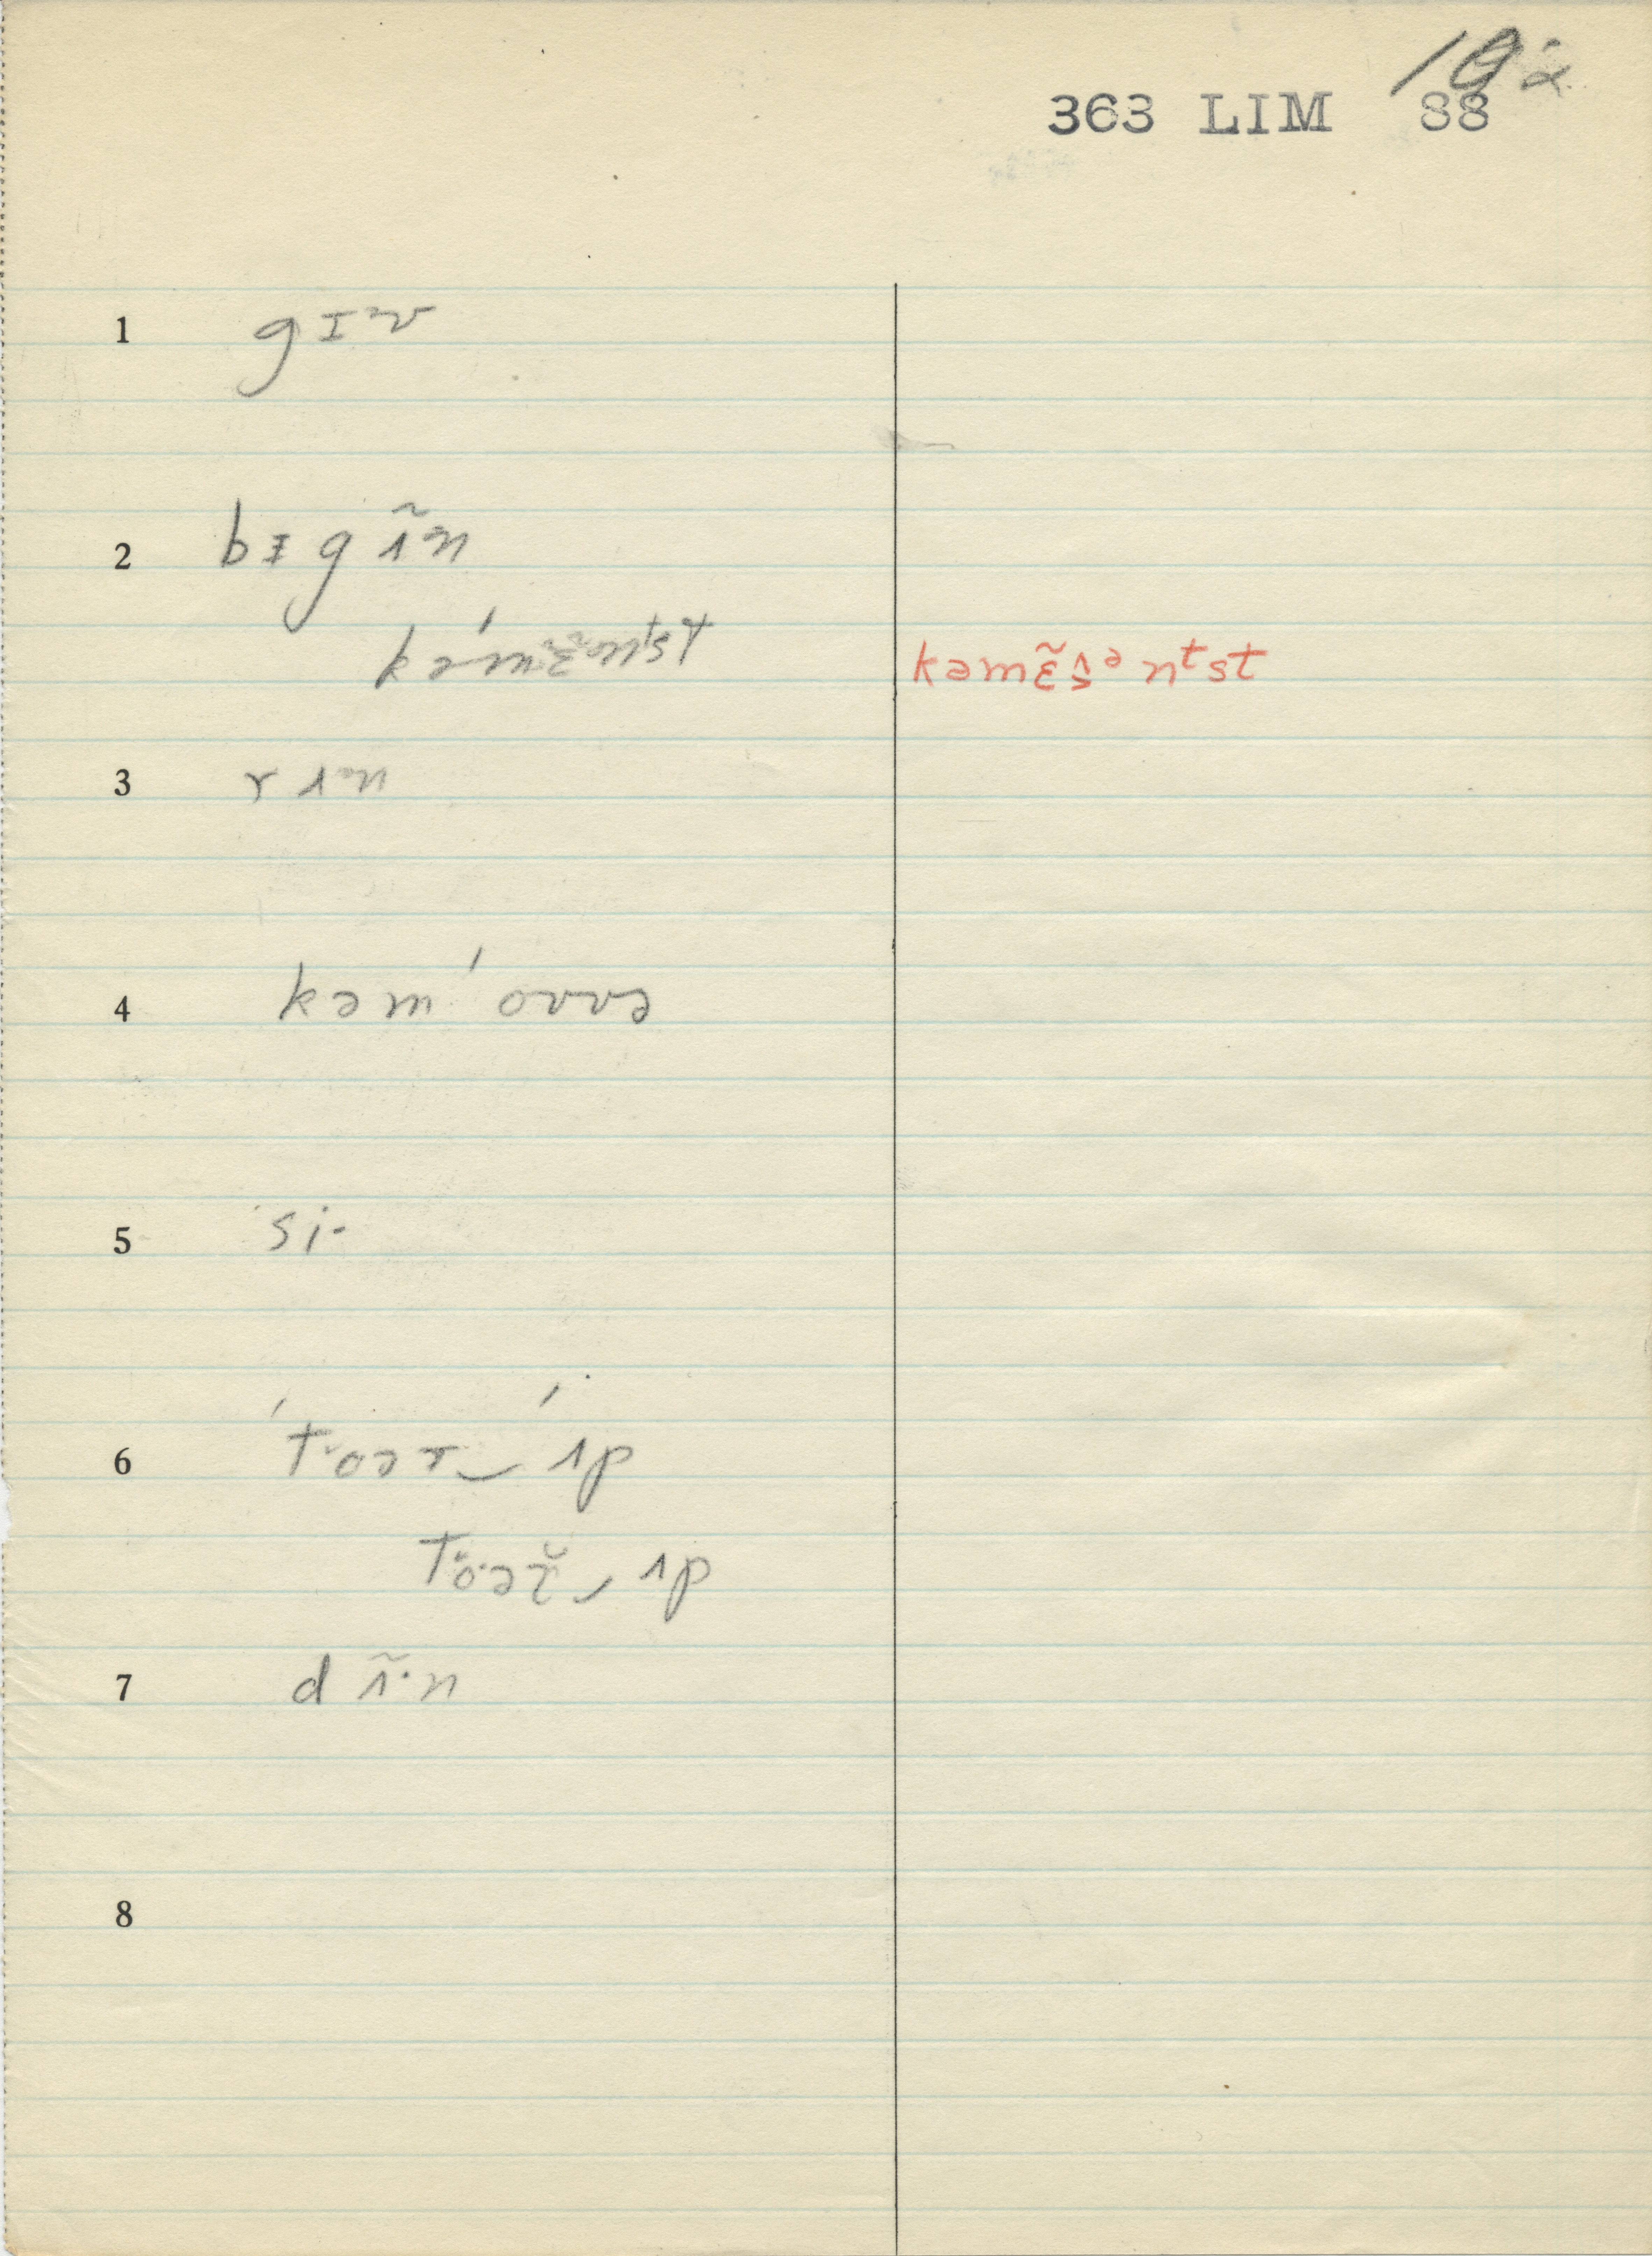 363 LIM 88
1 gɪᵊv
2 bɪgɪ̃ᵊn
kəmɛ̃ntst kəmɛ̃sᵊnᵗst
3 rɪᵊn
4 kəm ́ovvə
5 si·
6 ́toər‿ ́ɪp
toər̆‿ɪp
7 dɪ̃·n
8